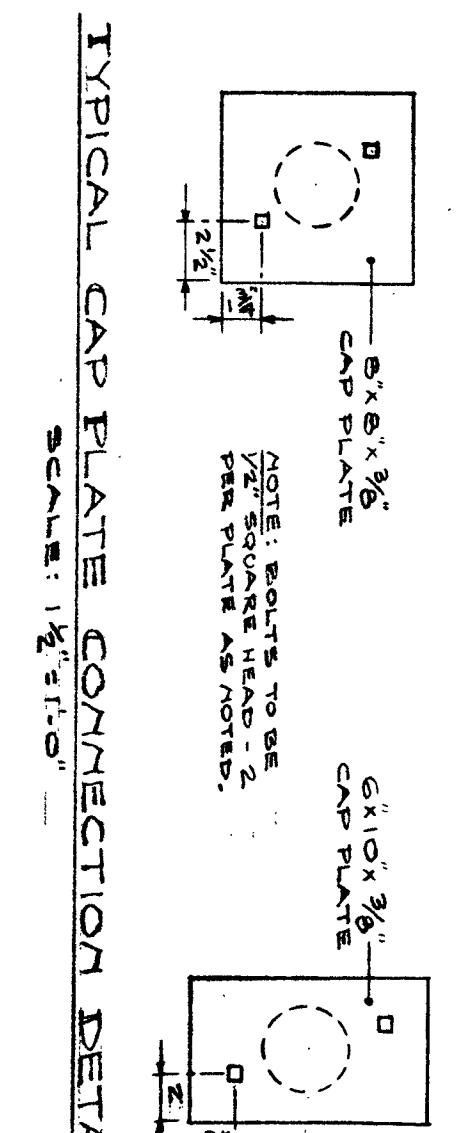 8" x 8" x 3/8"
CAP PLATE
2 1/2"
NOTE: BOLTS TO BE
1/2" SQUARE HEAD - 2
PER PLATE AS NOTED.
6" x 10" x 3/8"
CAP PLATE
TYPICAL CAP PLATE CONNECTION DETA
SCALE: 1 1/2" = 1'-0"